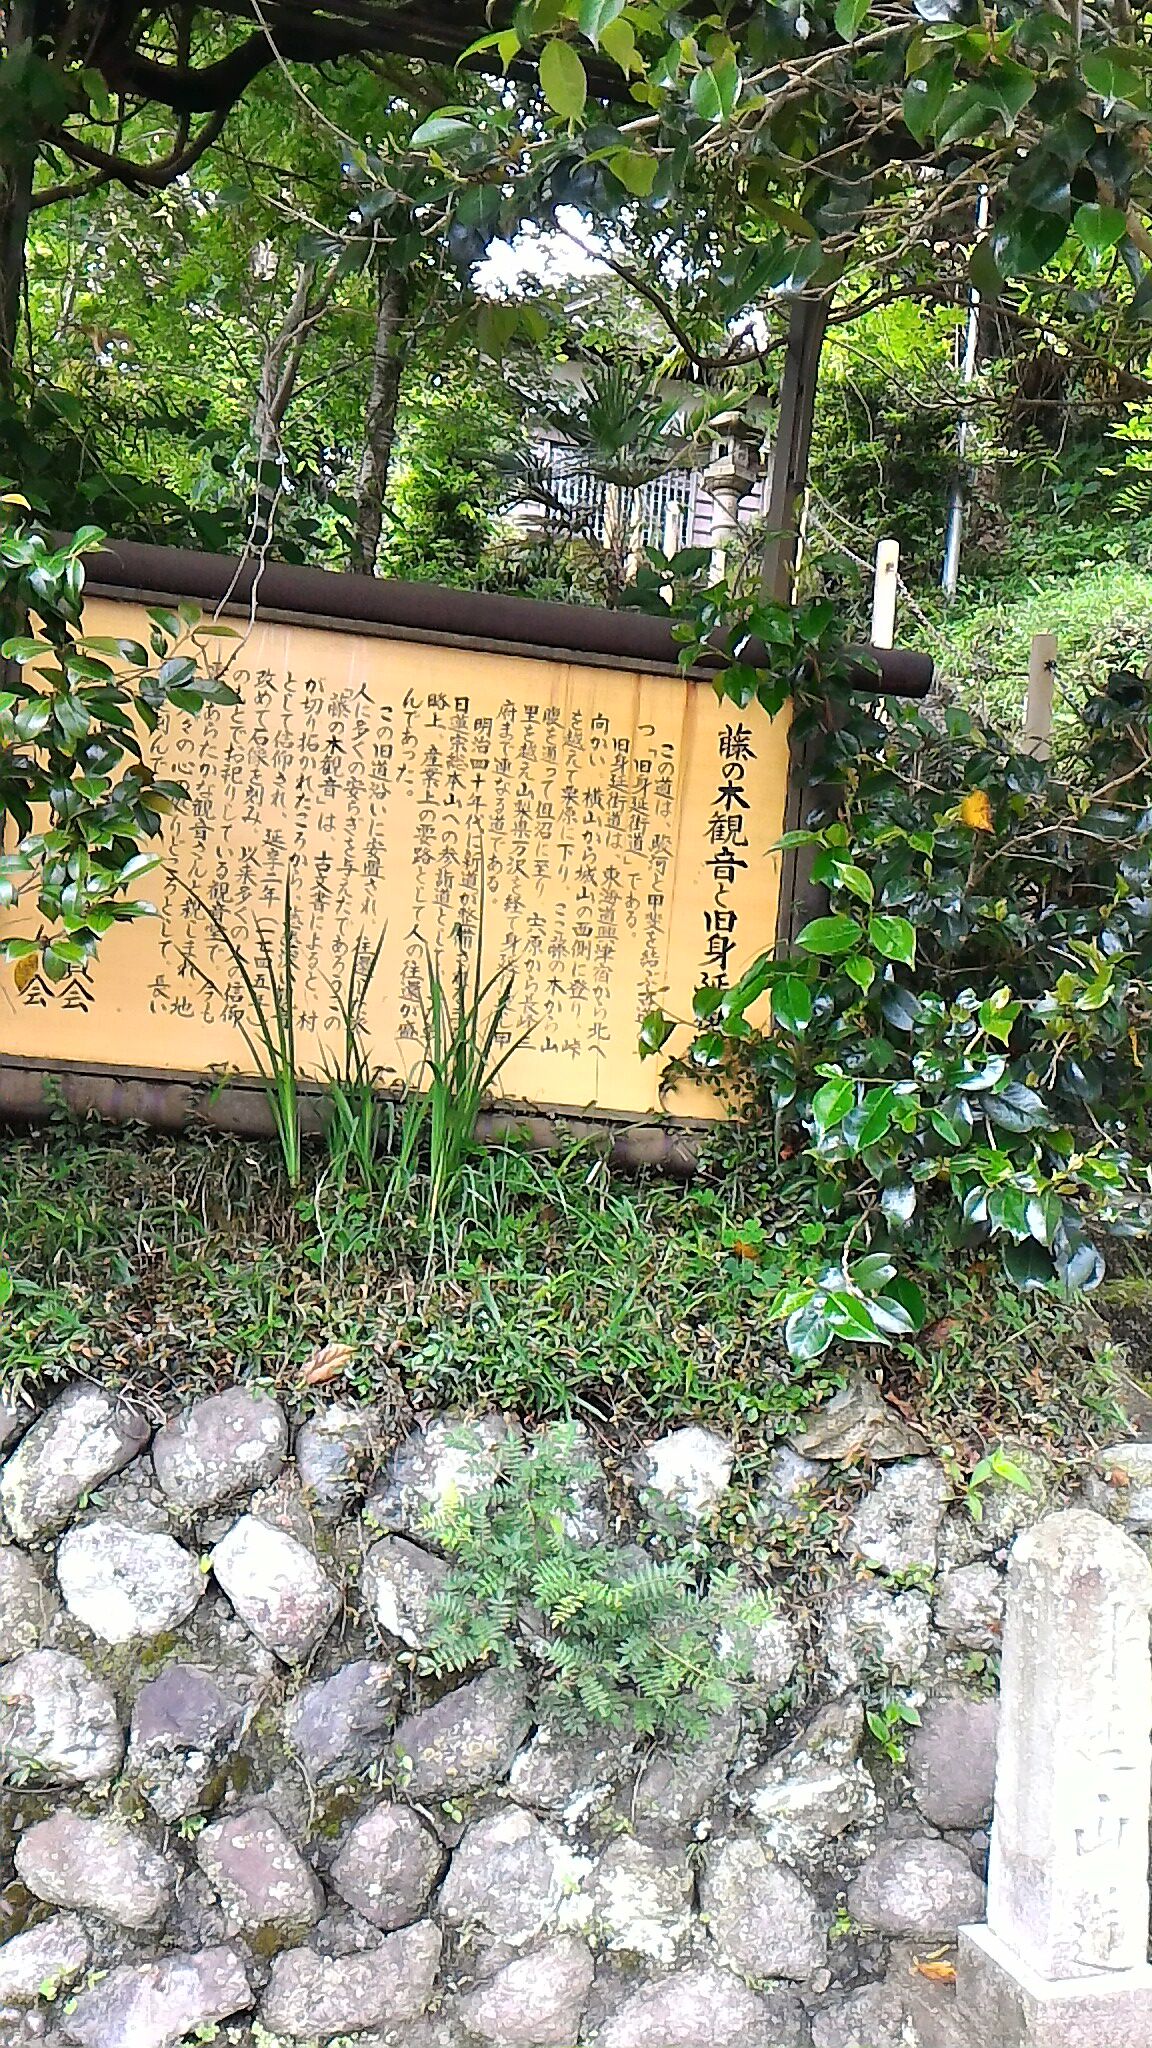 藤の木観音と旧身延
この道は、駿河と甲斐を結ぶ
つ「旧身延街道」である。
旧身延街道は、東海道興津宿から北へ
向かい、横山から城山の西側に登り、峠
を越えて栗原に下り、ここ藤の木から山
腹を通って但沼に至り、宍原から長峰三
里を越え山梨県万沢を経て身延
府まで連なる道である。
明治四十年代に新道が整備され
日蓮宗総本山への参詣道として
略上、産業上の要路として人の往還が盛
んであった。
この旧道沿いに安置され、往還
人に多くの安らぎを与えたであろうこの
「藤の木観音」は、古文書によると、村
が切り拓かれたころから
として信仰され、延享二年(一七四五
改めて石像を刻み、以来多くの人の信仰
のもとでお祀りしている観音堂で、今も
あらたかな観音さんと親しまれ、地
々の心の よりどころとして、長い
刻んで
会
会
山